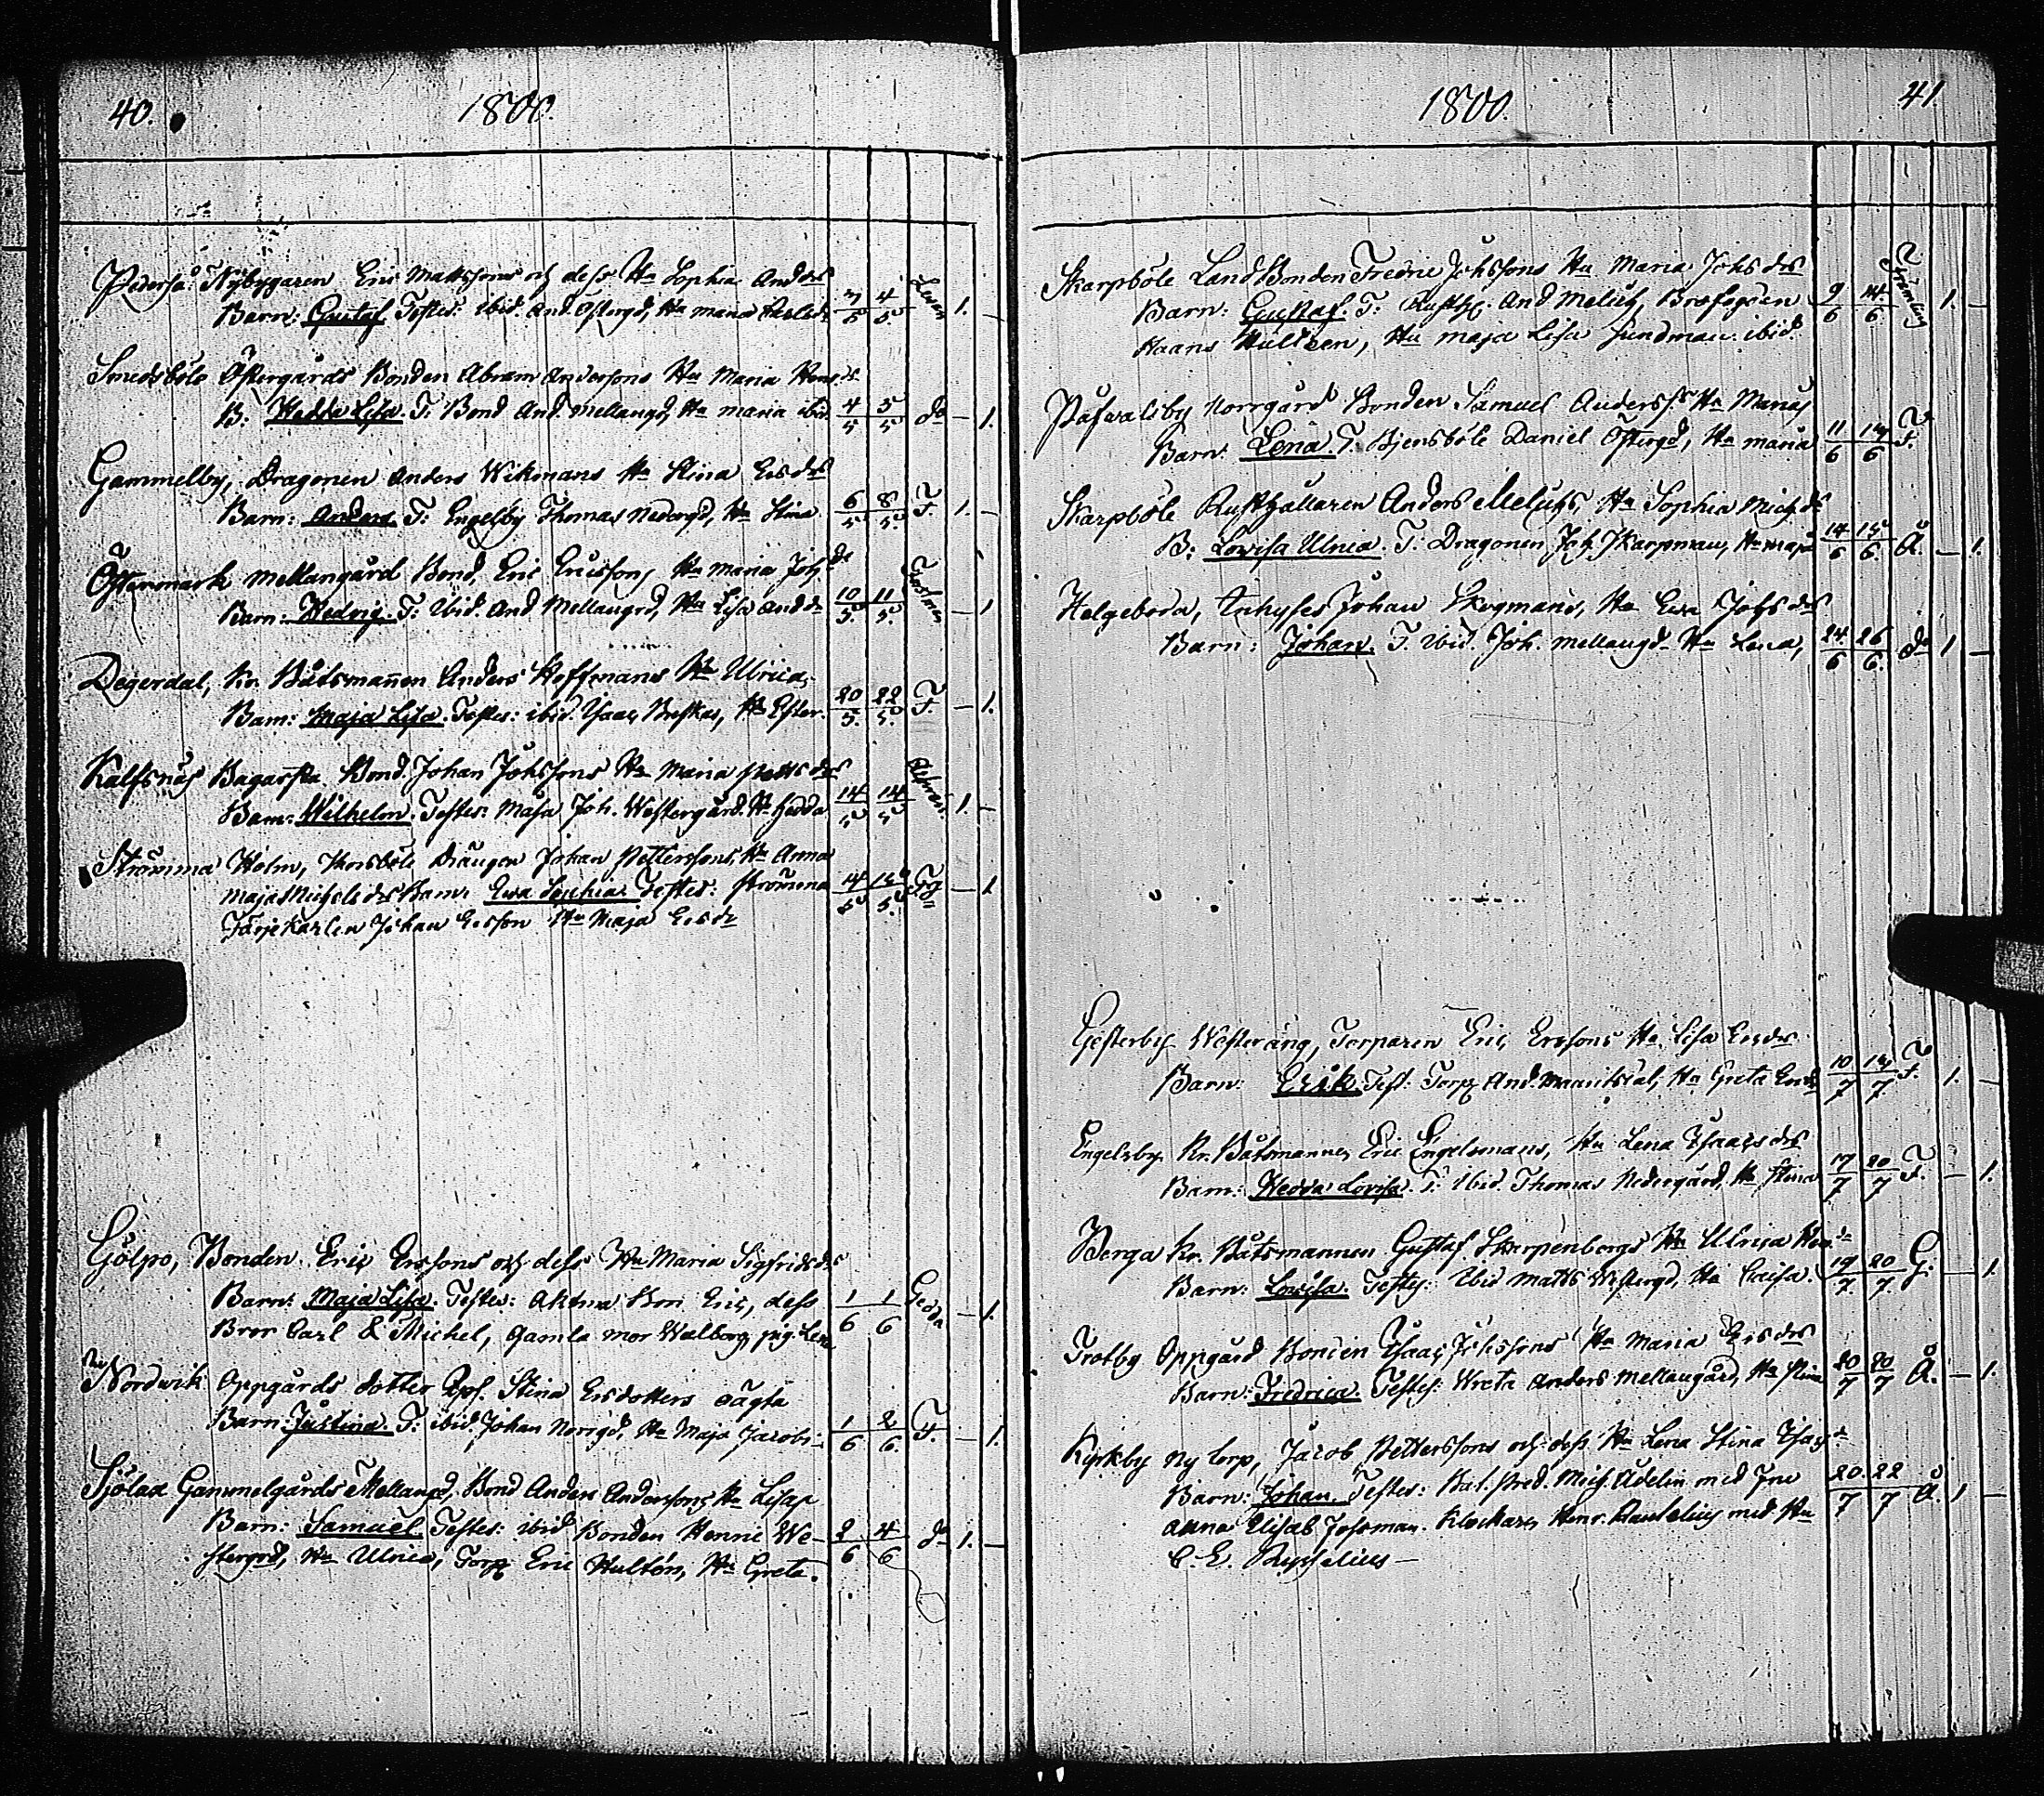 40. 1800.
Pederså Nybyggaren Eric Mattssons och dess Hu Sophia Anddr
Barn: Gustaf Testes: ibid. And. Östergd, Hu Maria 3/5 4/5 1. –
Smedsböle Östergårds Bonden Abram Anderssons Hu Maria
B: Hedda Lisa. T: Bond And. Mellangd, Hu Maria ibid. 4/5 5/5 do – 1.
Gammelby, Dragonen Anders Wikmans Hu Stina Ersdr
Barn: Anders. T: Engelsby Thomas Nedergd, Hu Stina 6/5 8/5 F. 1. –
Östermark Mellangård Bond, Eric Ericssons Hu Maria Johdr
Barn: Hedvig. T: ibid. And Mellangrd, Hu Lisa Anddr 10/5. 11/5. – 1
Degerdal, Kr. Båtsmannen Anders Hoffmans Hu Ulrica,
Barn: Maja Lisa. Testes: ibid. Isaac Hu Ester. 20/5. 22/5. F. – 1.
Kalfsnäs Bagarsta Bond. Johan Johssons Hu Maria Mattsdr
Barn: Wilhelm. Testes: Masa Joh. Westergård. Hu Hedda 14/5 14/5 1. –
Strömma Holm, Drängen Johan Petterssons, Hu Anna
Maja Michelsdr Barn: Ewa Sophia. Testes: Strömma 14/5 15/5. – 1
Färjekarlen Johan Ersson Hu Maja Ersdr
Gölpo, Bonden Eric Erssons och dess Hu Maria Sigfridsdr
Barn: Maja Lisa. Testes: Bon Eric, dess 1/6 1/6 Gedda – 1.
Bror Carl & Michel, Gamla mor Walborg, pig. Lena
Nordwik Oppgårds dotter Stina Ersdotters oägta
Barn: Justina. T: ibid. Johan Norrgd, Hu Maja Jacobs- 1/6 2/6. F – 1.
Sjölax Gammelgårds Mellangd, Bond Anders Anderssons Hu Lisas
Barn: Samuel. Testes: ibid Bonden Henric We- 2/6 4/6 do 1. –
stergrd, Hu Ulrica, Torp Eric Hultén, Hu Greta.
1800. 41
Skarpböle LandBonden Fredric Johssons Hu Maria Johsdr
Barn: Gustaf. T: And Melich, 9/6 14/6 Strömberg 1. –
Hu Maja Lisa Sundman ibid.
Påfwalsby Norrgård Bonden Samuel Anderss. Hu Marias
Barn: Lena. T. Bjensböle Daniel Östergd, Hu Maria 11/6 F.
Skarpböle Rusthållaren Anders Hu Sophia Michdr
B: Lowisa Ulrica. T: Dragonen Joh. Skarpman, Hu Maja 14/6 15/6 Å. – 1.
Helgeboda, Inhyses Johan Skogmans, Hu Ewa Johsdr
Barn: Johan. T. ibid. Joh. Mellangd. Hu Lena, 24/6 26/6. do 1 –
Gesterby Westeräng, Torparen Eric Erssons Hu Lisa Ersdr
Barn: Erik. Test: Torp And. Hu Greta 10/7 F. 1. –
Engelsby. Kr. Båtsmannen Eric Engelsmans, Hu Lena Isaacsdr
Barn: Hedda Lovisa. T: ibid. Thomas Nedergård, Hu Stina 17/7 20/7 F. – 1.
Berga Kr. Båtsmannen Gustaf Skarpenbergs Hu Ulrica
Barn: Lowisa. Testes: ibid Matts Westergd, Hu Caisa. 19/7. 20/7. G. – 1.
Trotby Oppgård Bonden Isaac Johssons Hu Maria Ersdr
Barn: Fredrica. Testes: Wreta Anders Mellangård, Hu Stina 20/7 20/7 Å. – 1.
Kyrkby Ny torp, Jacob Petterssons och dess Hu Lena Stina Isacsdr
Barn: Johan. Testes: Bat. Pred. Mich. Ådelin med Fru 20/7 22/7 Å. 1 –
Anna Elisab. Forsman. Klockare Henr. med Hu
C. E. Rysselius –